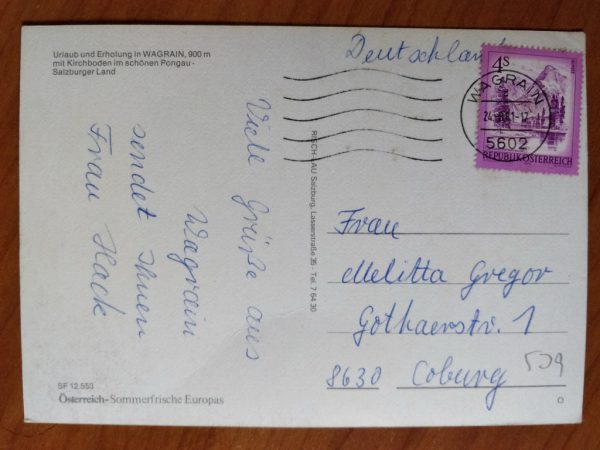 Urlaub und Erholung in WAGRAIN, 900 m
mit Kirchboden im schönen Pongau -
Salzburger Land
Deutschland
4S
WAGRAIN
5602
REPUBLIK ÖSTERREICH
Viele Grüße aus
Wagrain
sendet Ihnen
Frau Hack
RISCH-LAU Salzburg, Lasserstraße 35 · Tel. 7 64 30
Frau
Melitta Gregor
Gothaerstr. 1
8630 Coburg
SF 12.553
Österreich-Sommerfrische Europas